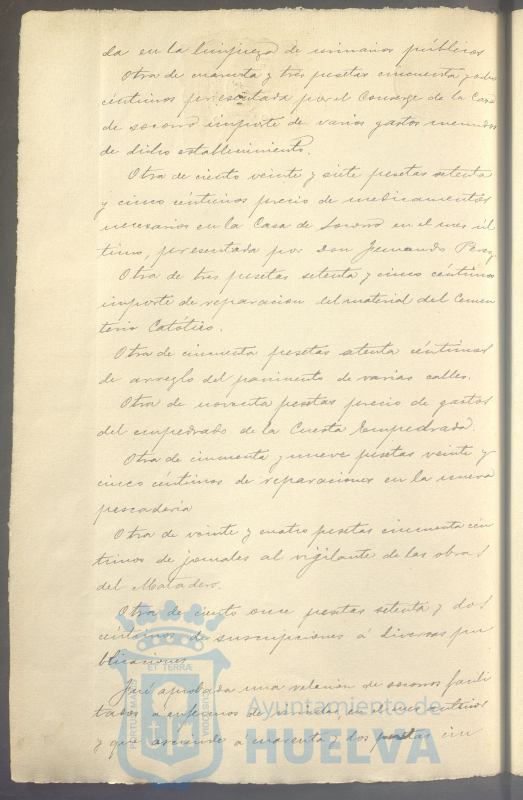 da en la limpieza de urinarios públicos
Otra de cuarenta y tres pesetas cincuenta y ocho
céntimos presentada por el Conserge de la Casa
de socorro importe de varios gastos menudos
de dicho establecimiento.
Otra de ciento veinte y siete pesetas setenta
y cinco céntimos precio de medicamentos
necesarios en la Casa de Socorro en el mes úl
timo, presentada por Don Fernando Perez
Otra de tres pesetas setenta y cinco céntimos
importe de reparacion del material del Cemen
terio Católico.
Otra de cincuenta pesetas setenta céntimos
de arreglo del pavimento de varias calles.
Otra de noventa pesetas precio de gastos
del empedrado de la Cuesta Empedrada.
Otra de cincuenta y nueve pesetas veinte y
cinco céntimos de reparaciones en la nueva
pescadería
Otra de veinte y cuatro pesetas cincuenta cén
timos de jornales al vigilante de las obras
del Matadero.
Otra de ciento once pesetas setenta y dos
céntimos de suscripciones á diversas pu
blicaciones
Fué aprobada una relacion de socorros facili
tados a enfermos de viruelas, en
y que asciende á cuarenta y dos pesetas cin
PORTUS MARIS ET TERRÆ CUSTODIA
Ayuntamiento de
HUELVA